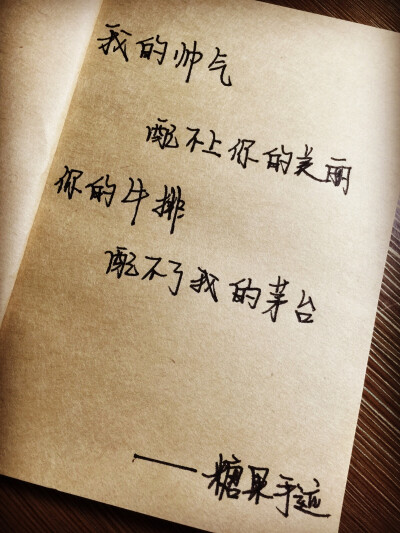 我的帅气
配不上你的美丽
你的牛排
配不了我的茅台
——糖果手迹